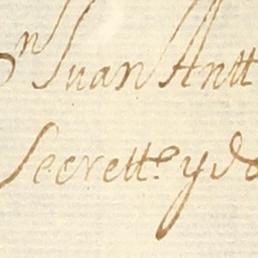 Dn Juan Antt
Secrett.º y de